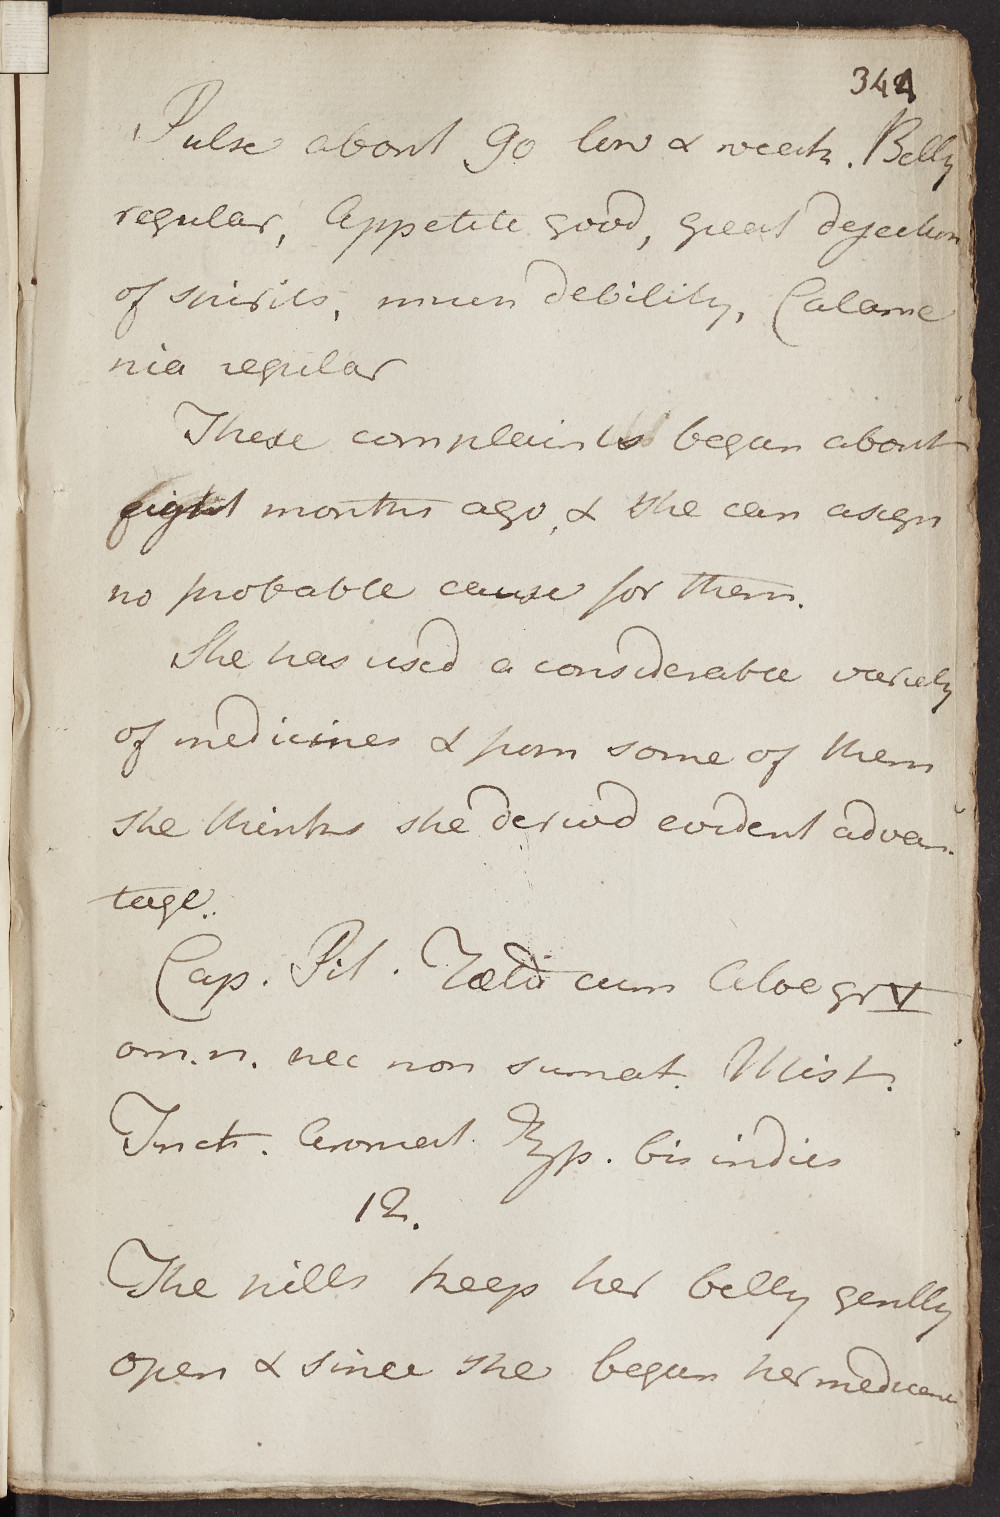 344
Pulse about 90 low & weak. Belly
regular, Appetite good, great dejection
of spirits, much debility, Catame
nia regular
These complaints began about
eight months ago, & she can assign
no probable cause for them.
She has used a considerable variety
of medicines & from some of them
she thinks she derived evident advan-
tage.
Cap. Pil. Fœtid cum Aloe gr V
om. n. nec non sumat. Mist.
Tinct. Aromat. bis indies
12.
The pills keep her belly gently
open & since she began her medicine